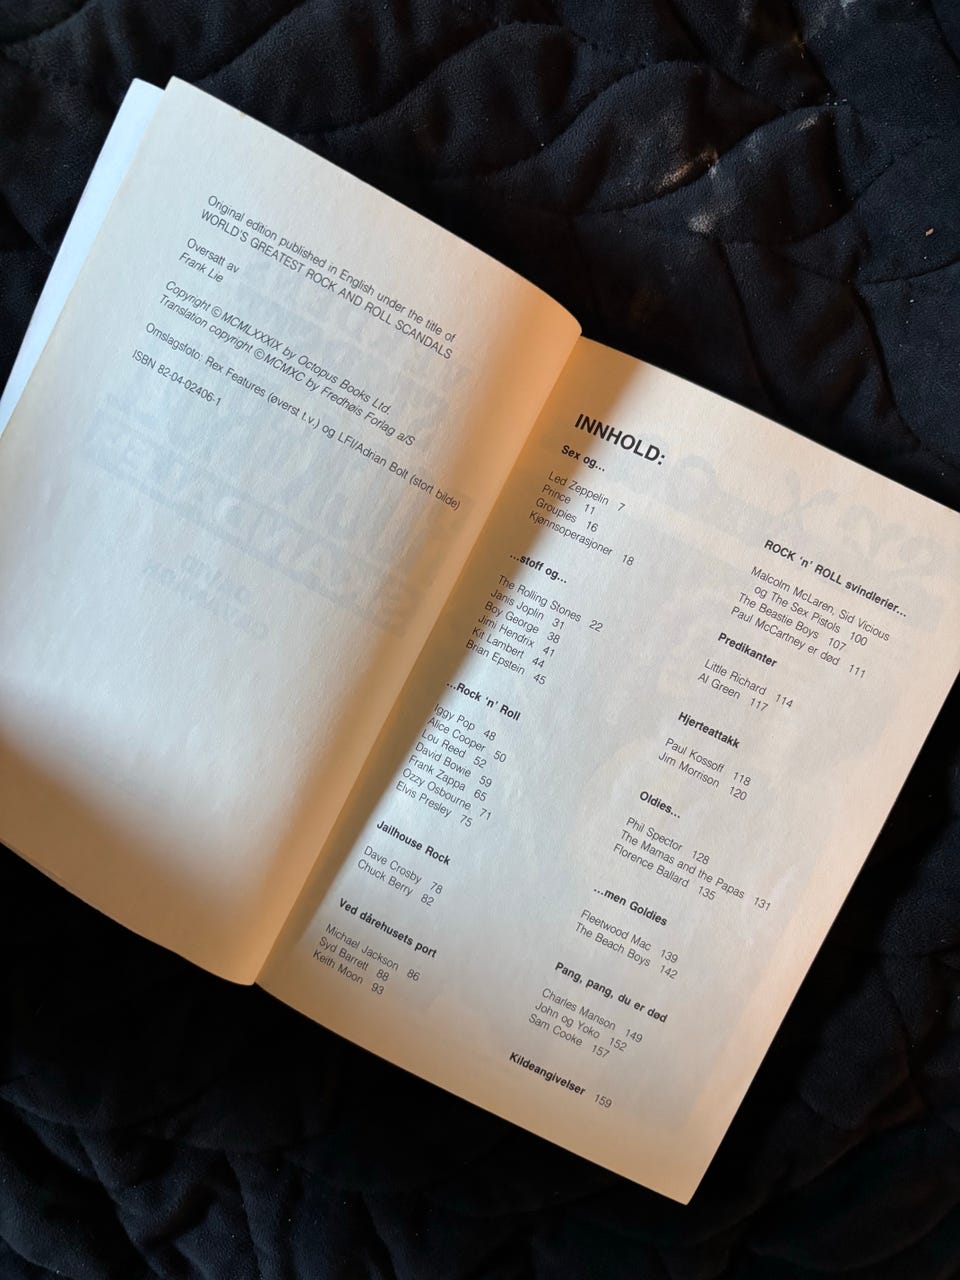 Original edition published in English under the title of
WORLD'S GREATEST ROCK AND ROLL SCANDALS
Oversatt av
Frank Lie
Copyright © MCMLXXXIX by Octopus Books Ltd.
Translation copyright © MCMXC by Fredhøis Forlag a/S
Omslagsfoto: Rex Features (øverst t.v.) og LFI/Adrian Bolt (stort bilde)
ISBN 82-04-02406-1
INNHOLD:
Sex og...
Led Zeppelin 7
Prince 11
Groupies 16
Kjønnsoperasjoner 18
...stoff og...
The Rolling Stones 22
Janis Joplin 31
Boy George 38
Jimi Hendrix 41
Kit Lambert 44
Brian Epstein 45
...Rock 'n' Roll
Iggy Pop 48
Alice Cooper 50
Lou Reed 52
David Bowie 59
Frank Zappa 65
Ozzy Osbourne 71
Elvis Presley 75
Jailhouse Rock
Dave Crosby 78
Chuck Berry 82
Ved dårehusets port
Michael Jackson 86
Syd Barrett 88
Keith Moon 93
ROCK 'n' ROLL svindlerier...
Malcolm McLaren, Sid Vicious
og The Sex Pistols 100
The Beastie Boys 107
Paul McCartney er død 111
Predikanter
Little Richard 114
Al Green 117
Hjerteattakk
Paul Kossoff 118
Jim Morrison 120
Oldies...
Phil Spector 128
The Mamas and the Papas 131
Florence Ballard 135
...men Goldies
Fleetwood Mac 139
The Beach Boys 142
Pang, pang, du er død
Charles Manson 149
John og Yoko 152
Sam Cooke 157
Kildeangivelser 159